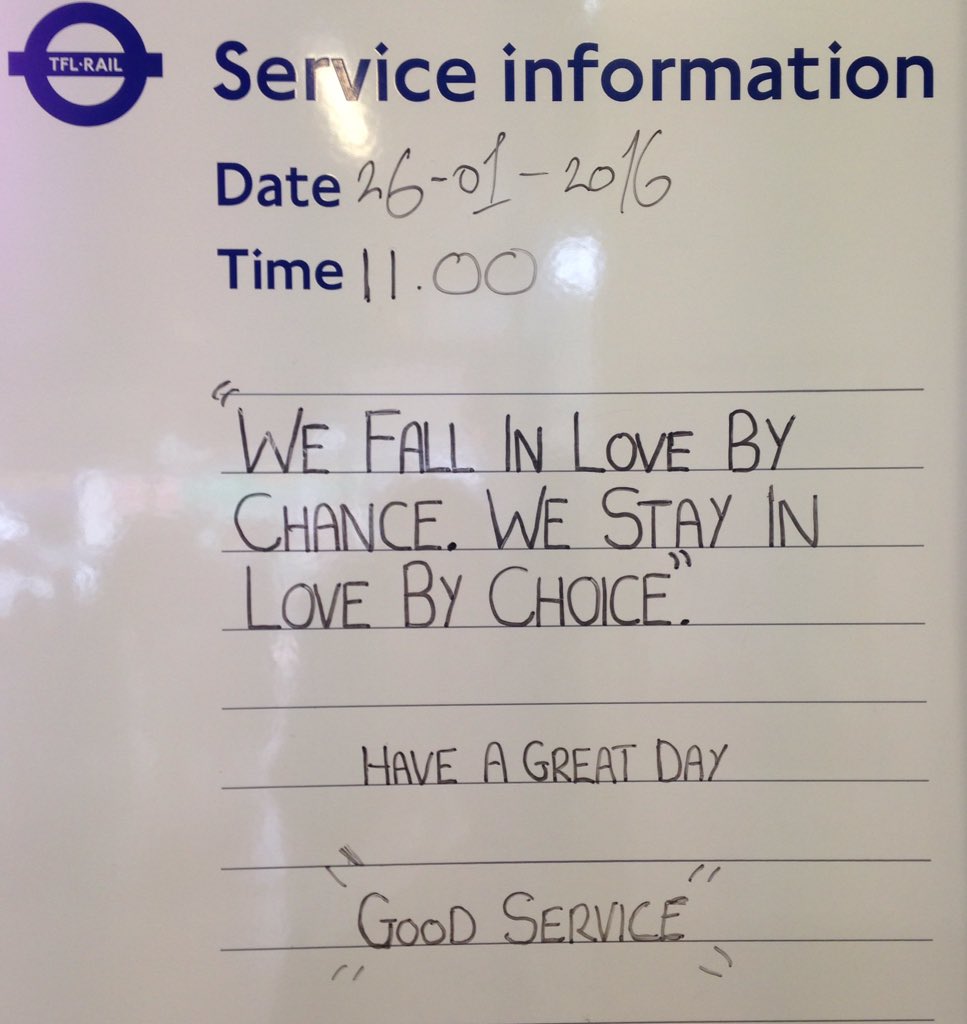 TFL·RAIL
Service information
Date 26-01-2016
Time 11.00
“WE FALL IN LOVE BY
CHANCE. WE STAY IN
LOVE BY CHOICE”.
HAVE A GREAT DAY
GOOD SERVICE